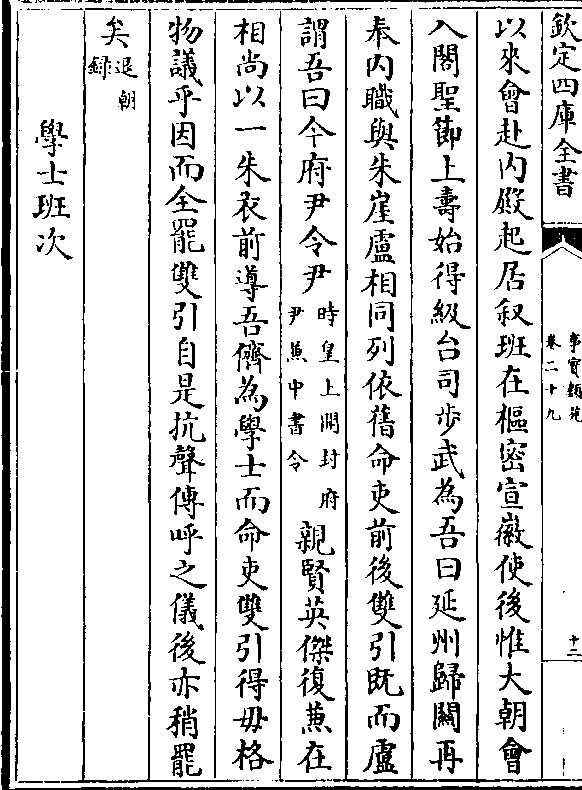 欽定四庫全書
事實類苑
卷二十九
十二
以來會赴内殿起居叙班在樞密宣徽使後惟大朝會
入閤聖節上壽始得級台司步武為吾曰延州歸闕再
奉内職與朱崖盧相同列依舊命吏前後雙引既而盧
謂吾曰今府尹令尹時皇上開封府尹兼中書令親賢英傑復兼在
相尚以一朱衣前導吾儕為學士而命吏雙引得毋格
物議乎因而全罷雙引自是抗聲傳呼之儀後亦稍罷
矣退朝錄
學士班次